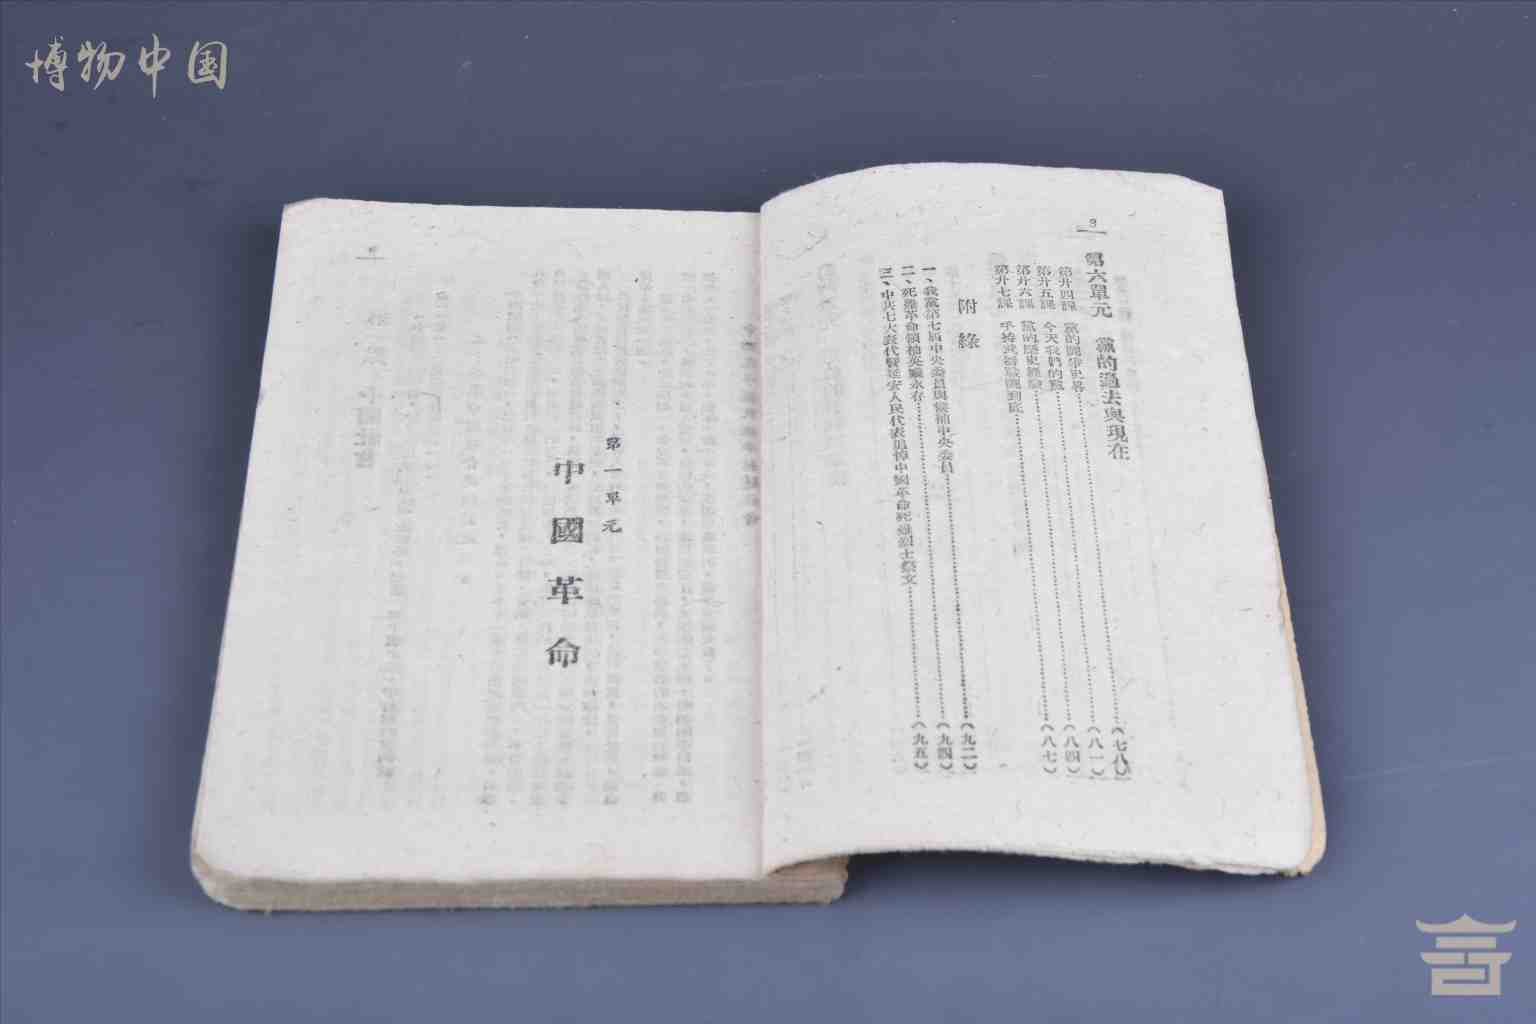 博物中国
3
第六單元 黨的過去與現在……(七八)
第廿四課 黨的鬪爭史畧……(八一)
第廿五課 今天我們的黨……(八四)
第廿六課 黨的歷史經驗……(八七)
第廿七課 手持武器戰鬪到底
附錄
一、我黨第七屆中央委員與候補中央委員……(九二)
二、死難革命領袖英魂永在……(九四)
三、中共七大表代暨延安人民代表追悼中國革命死難烈士祭文……(九五)
第一單元
中國革命